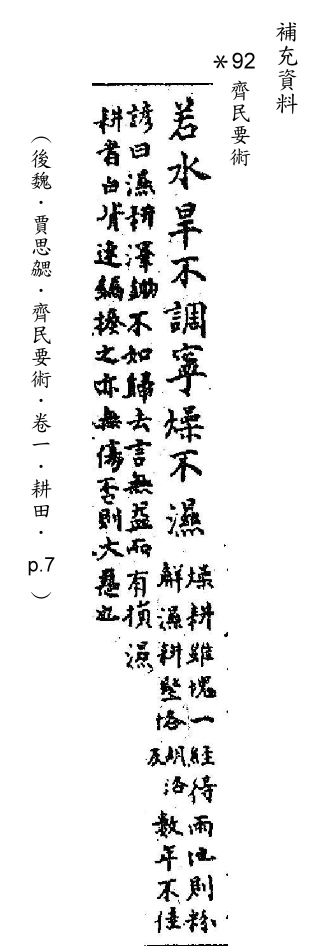 補充資料
*92 齊民要術
若水旱不調寧燥不濕
燥耕雖塊一經得雨地則粉
解濕耕堅垎胡洛反數年不佳
諺曰濕耕澤鋤不如歸去言無益而有損濕
耕者白背速之亦無傷否則大惡也
（後魏．賈思勰．齊民要術．卷一．耕田．p.7）